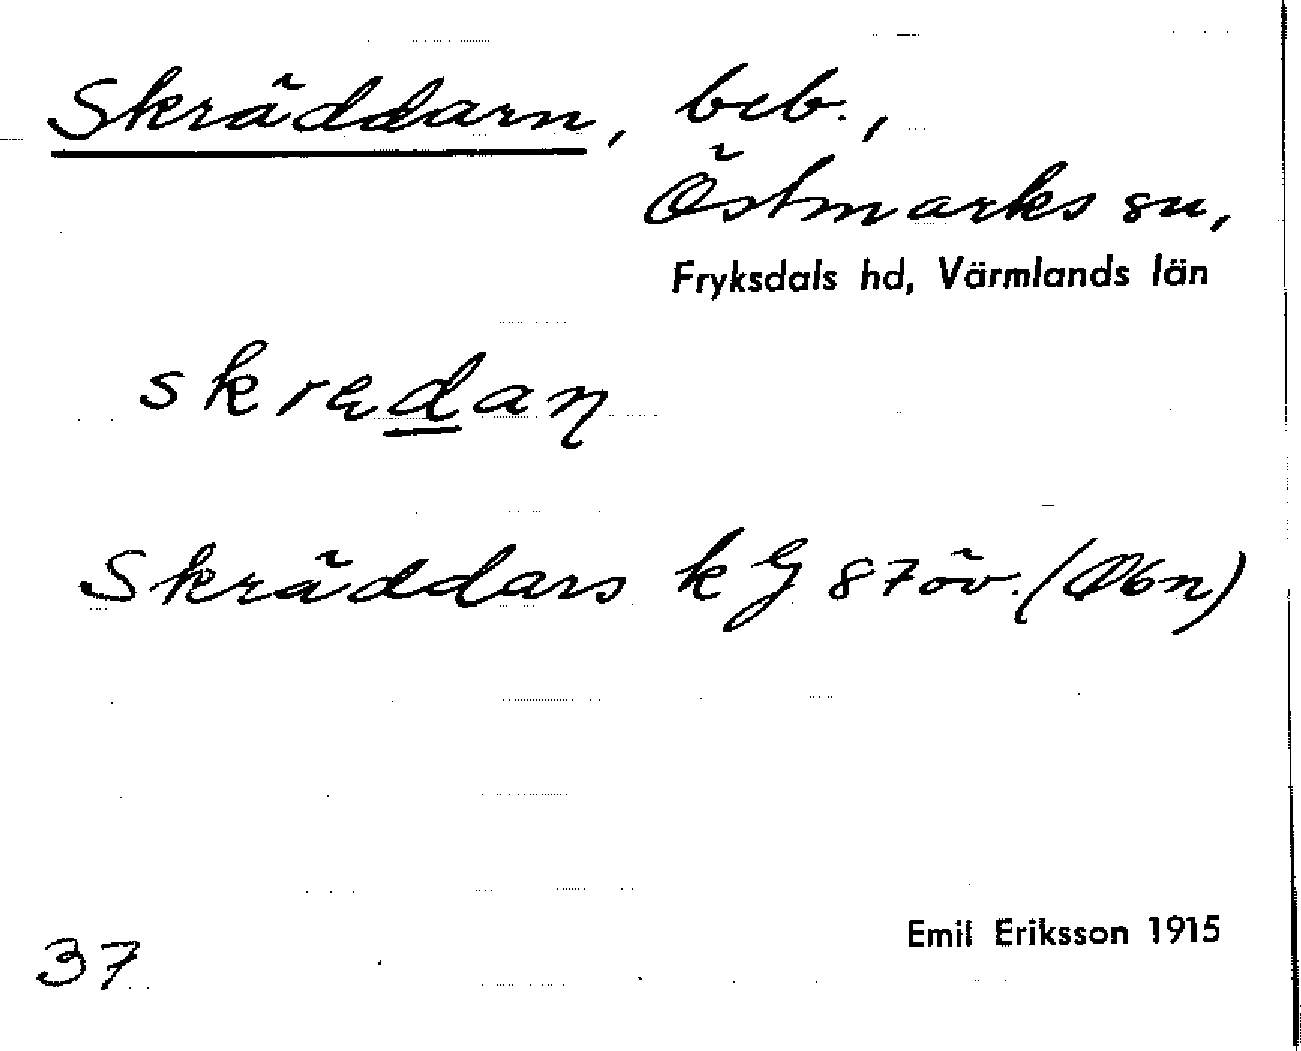 Skräddarn, beb.,
Östmarks sn,
Fryksdals hd, Värmlands län
skrædaɳ
Skräddars k G 87 öv. (Öbn)
37
Emil Eriksson 1915